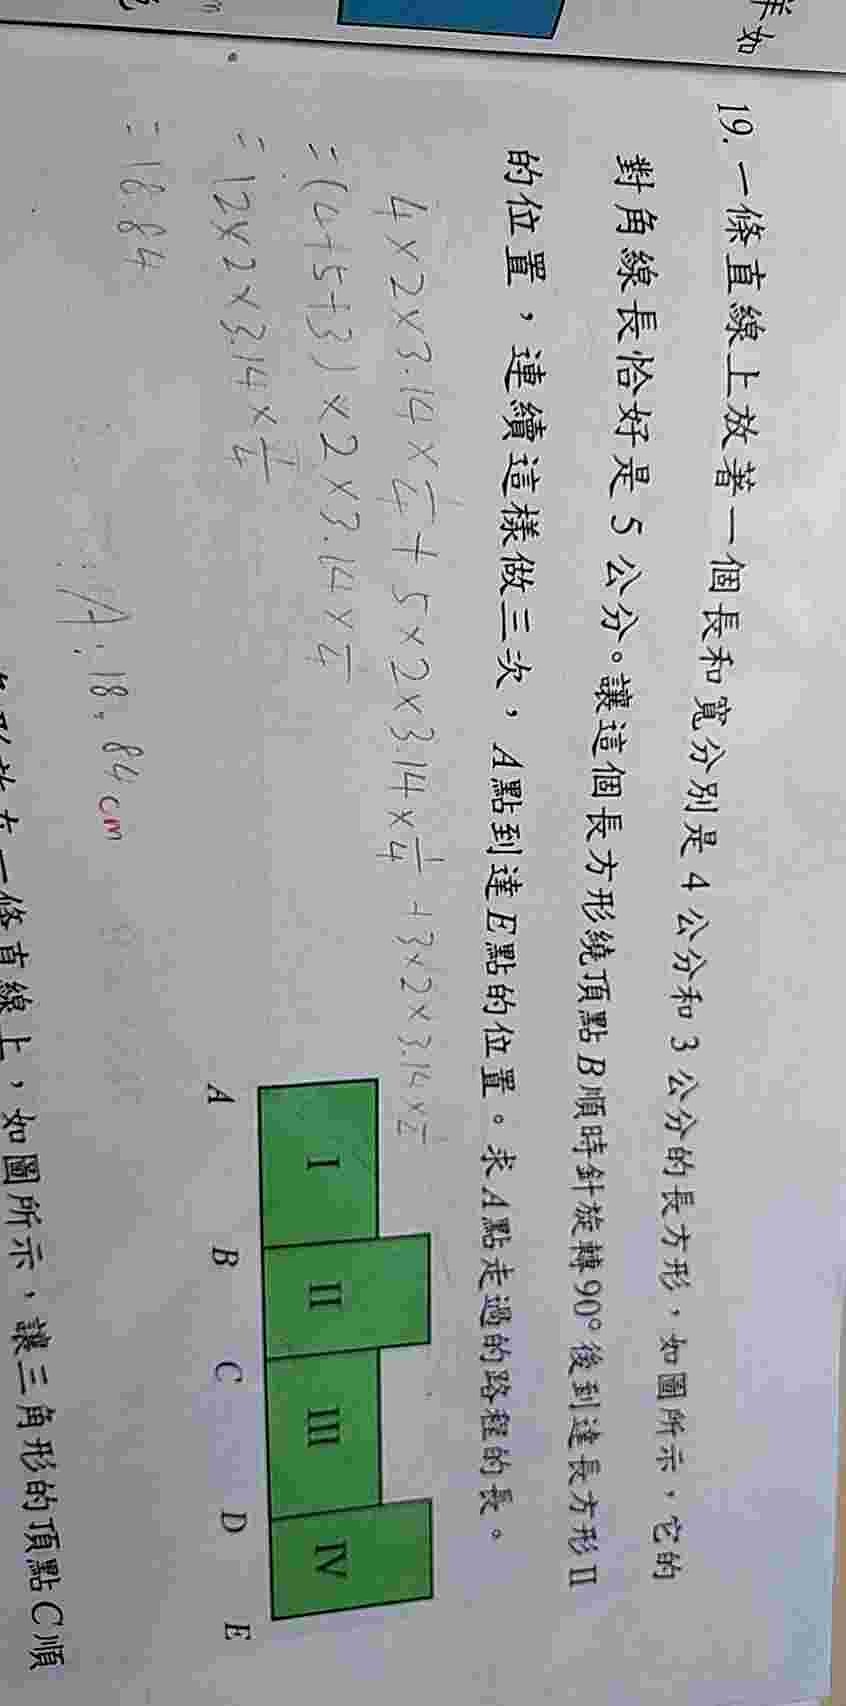 19. 一條直線上放著一個長和寬分別是4公分和3公分的長方形，如圖所示，它的
對角線長恰好是5公分。讓這個長方形繞頂點B順時針旋轉90°後到達長方形II
的位置，連續這樣做三次，A點到達E點的位置。求A點走過的路程的長。
4×2×3.14×1/4+5×2×3.14×1/4+3×2×3.14×1/4
=(4+5+3)×2×3.14×1/4
=12×2×3.14×1/4
=18.84
A:18.84cm
I II III IV
A B C D E
條直線上，如圖所示，讓三角形的頂點C順